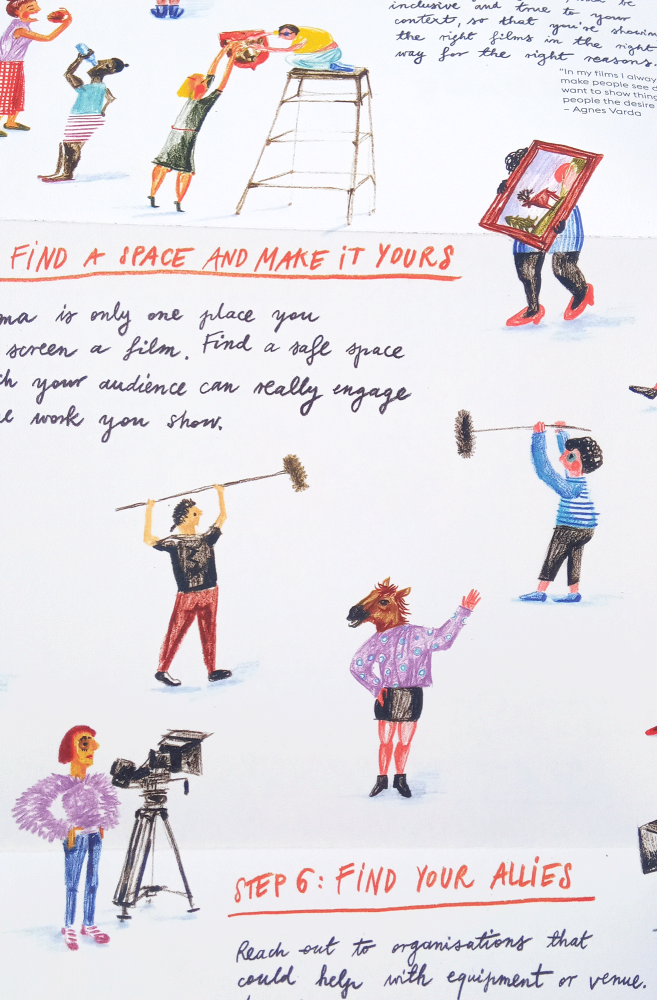 inclusive and true to your
context, so that you're showin
the right films in the right
way for the right reasons.
"In my films I alway
make people see d
want to show thing
people the desire
– Agnes Varda
FIND A SPACE AND MAKE IT YOURS
ma is only one place you
screen a film. Find a safe space
ch your audience can really engage
e work you show.
STEP 6: FIND YOUR ALLIES
Reach out to organisations that
could help with equipment or venue.